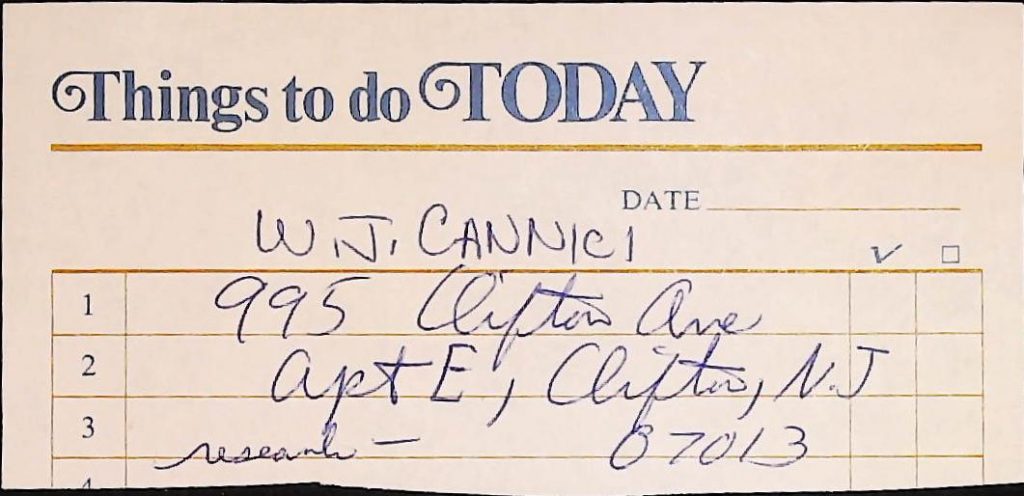 Things to do TODAY
DATE
W.J. CANNICI
✓ □
1 995 Clifton Ave
2 Apt E, Clifton, N.J
3 research — 07013
4